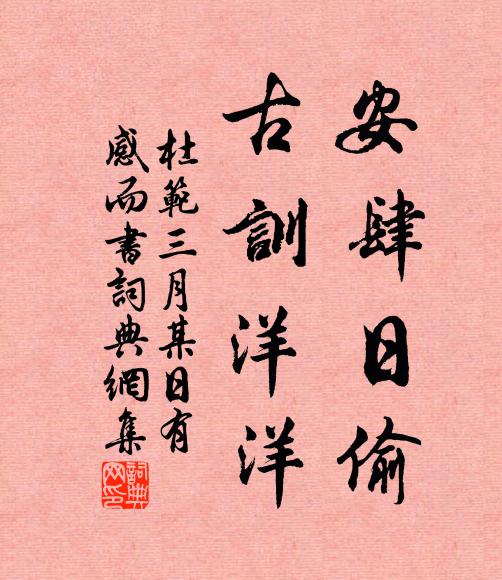 安肆日偷
古訓洋洋
杜範三月某日有
感而書詞典網集
詞典
网印